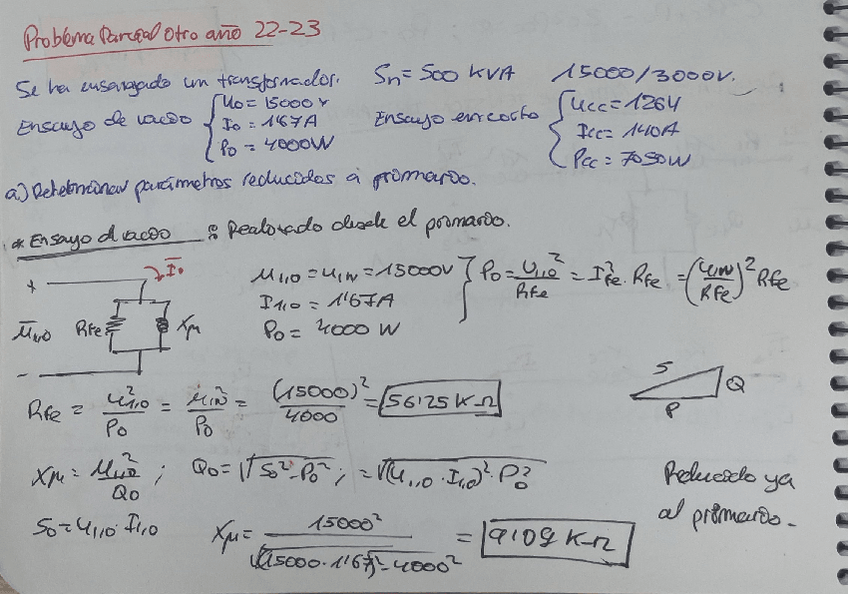 Problema Parcial Otro año 22-23
Se ha ensayado un transformador. Sn = 500 KVA 15000/3000V.
Ensayo de vacío { U0 = 15000 V Ensayo en corto { Ucc = 126V
I0 = 1'67A Icc = 140A
P0 = 4000W Pcc = 7050W
a) Determinar parámetros reducidos a primario.
* Ensayo d vacío : Realizado desde el primario.
+ I0
U1,0 RFe Xμ
-
U1,0 = U1N = 15000V } P0 = U1,0² / RFe = I²Fe · RFe = (U1N / RFe)² RFe
I1,0 = 1'67A
P0 = 4000 W
RFe = U²1,0 / P0 = U1N² / P0 = (15000)² / 4000 = 56'25 K Ω
S Q P
Xμ = U1,0² / Q0 ; Q0 = √S0² - P0² ; = √(U1,0 · I1,0)² · P0²
Reducido ya al primario -
S0 = U1,0 · I1,0 Xμ = 15000² / √(15000 · 1'67)² - 4000² = 9'109 K Ω